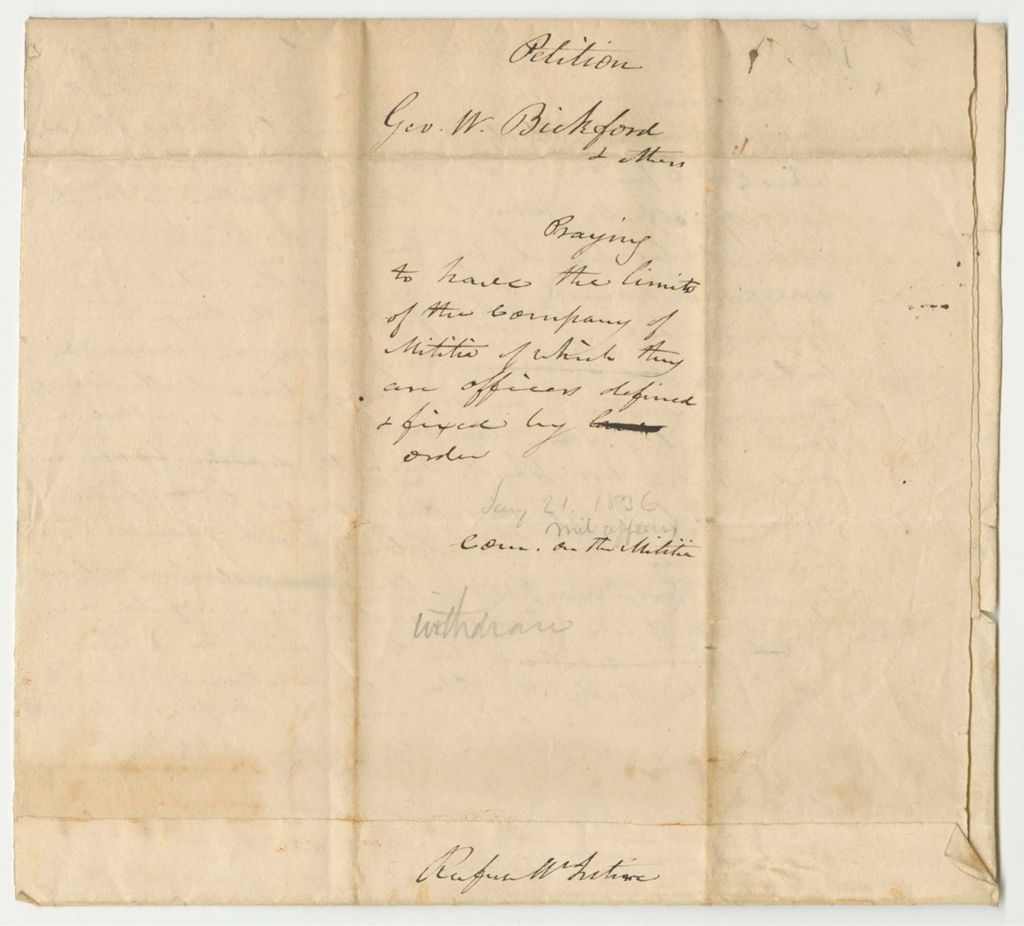 Petition
Geo. W. Bickford
& others
Praying
to have the limits
of the Company of
Militia of which they
are officers defined
& fixed by
order
Jany 21. 1836
Mil affairs
Com. on the Militia
withdraw
Rufus McIntire